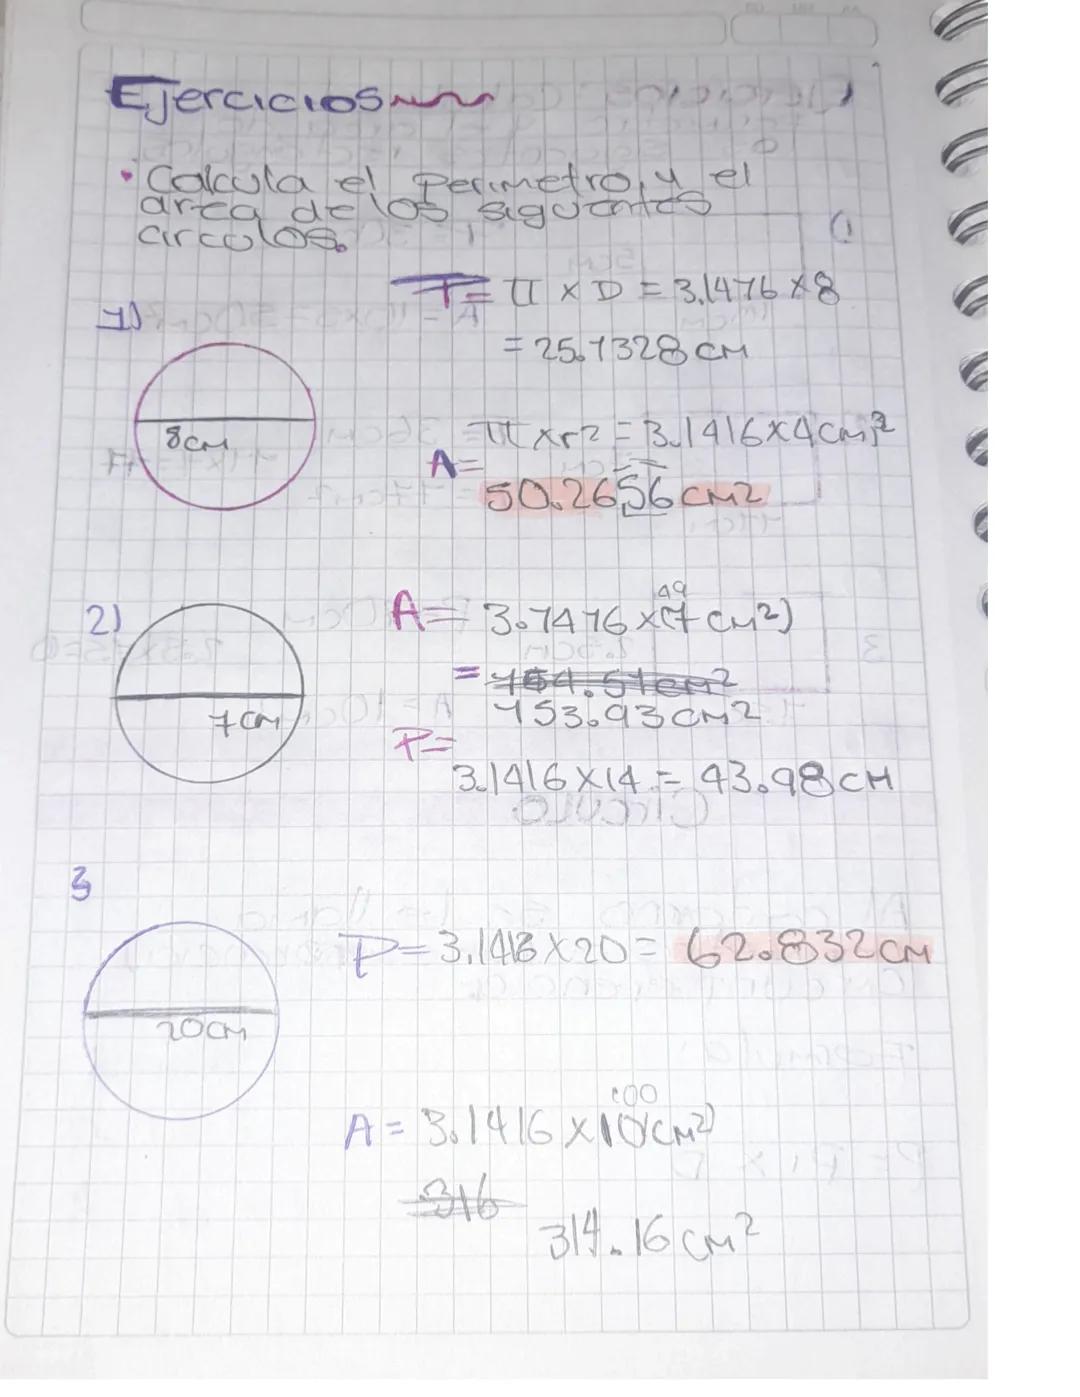 Ejercicios
• Calcula el perimetro, y el
area de los siguientes
circulos.
1)
P= π x D = 3.1416 x 8
= 25.1328 cm
8cm
π x r2 = 3.1416 x 4cm²
A=
50.2656 cm2
2)
49
A= 3.1416 x (7 cm2)
= 154.51cm2
153.93 cm2
7cm
P=
3.1416 x 14 = 43.98 cm
3
P= 3.1416 x 20 = 62.832 cm
20cm
100
A = 3.1416 x 10(cm2)
316
314.16 cm2